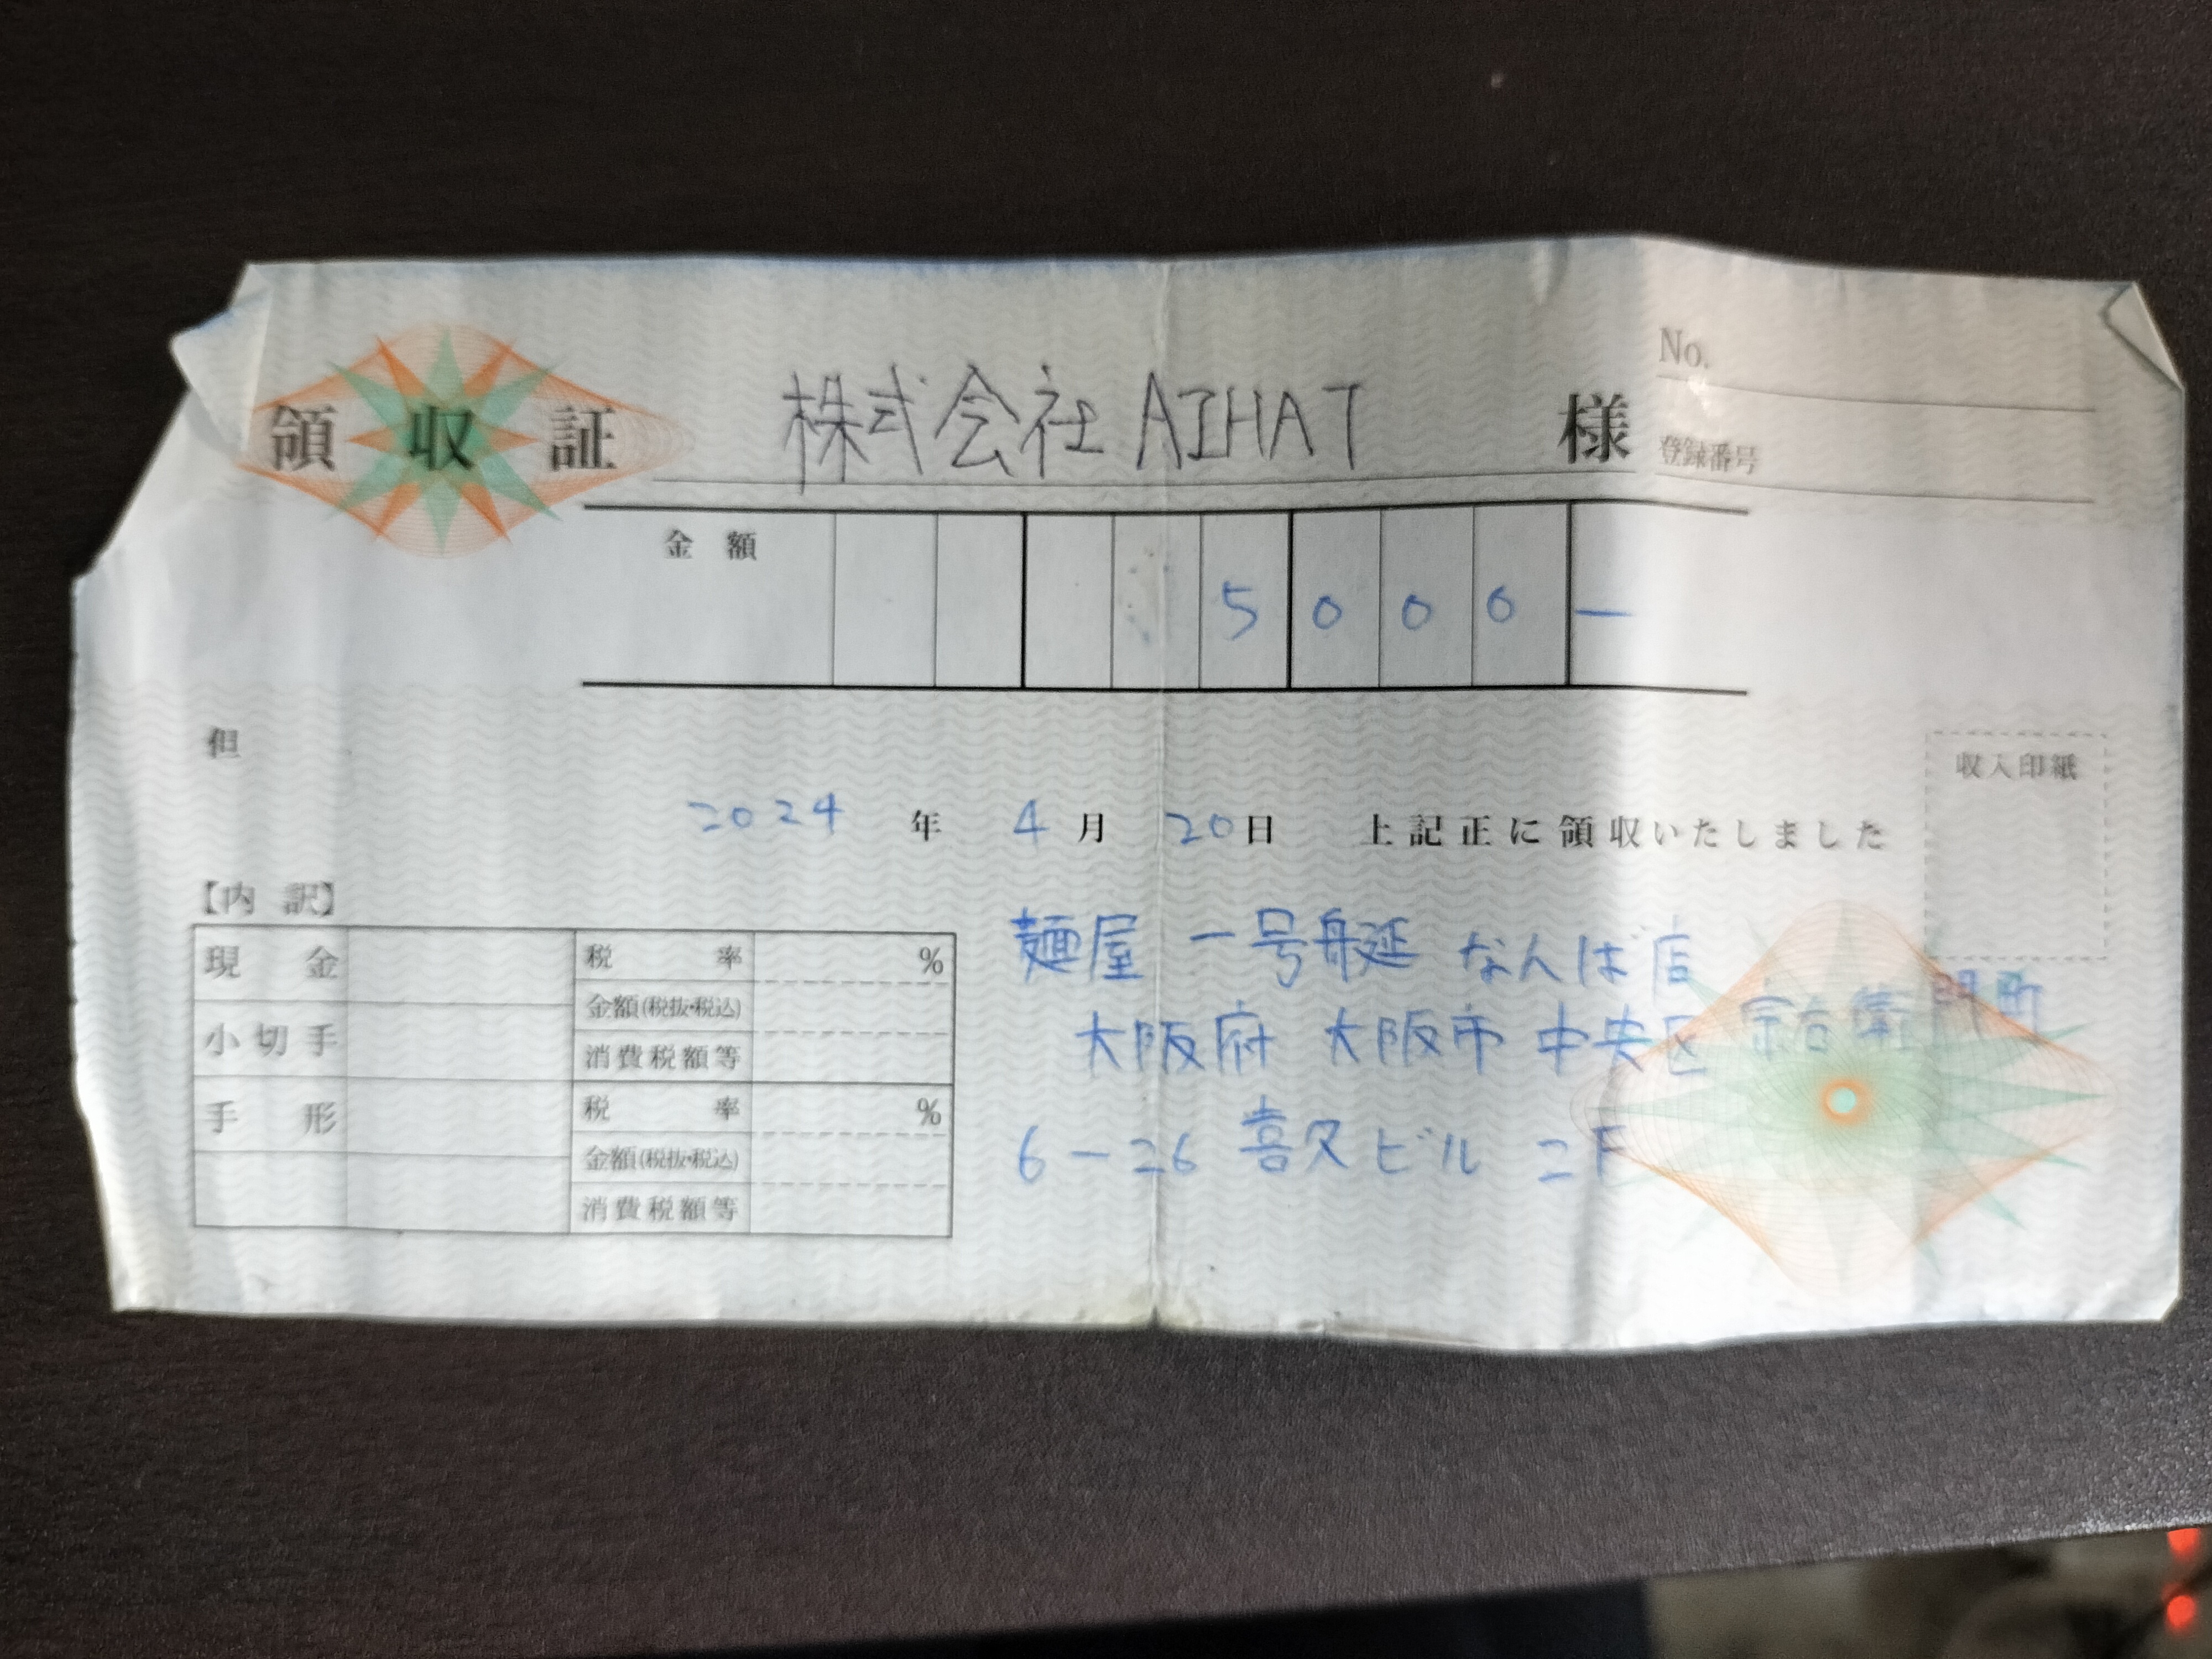 領収証 株式会社 AIHAT 様
No.
登録番号
金額 5000-
但
収入印紙
2024年 4月 20日 上記正に領収いたしました
【内訳】
現金
小切手
手形
税率 %
金額(税抜・税込)
消費税額等
税率 %
金額(税抜・税込)
消費税額等
麺屋 一号 なんば店
大阪府 大阪市 中央区 宗右衛門町
6-26 喜久ビル 2F